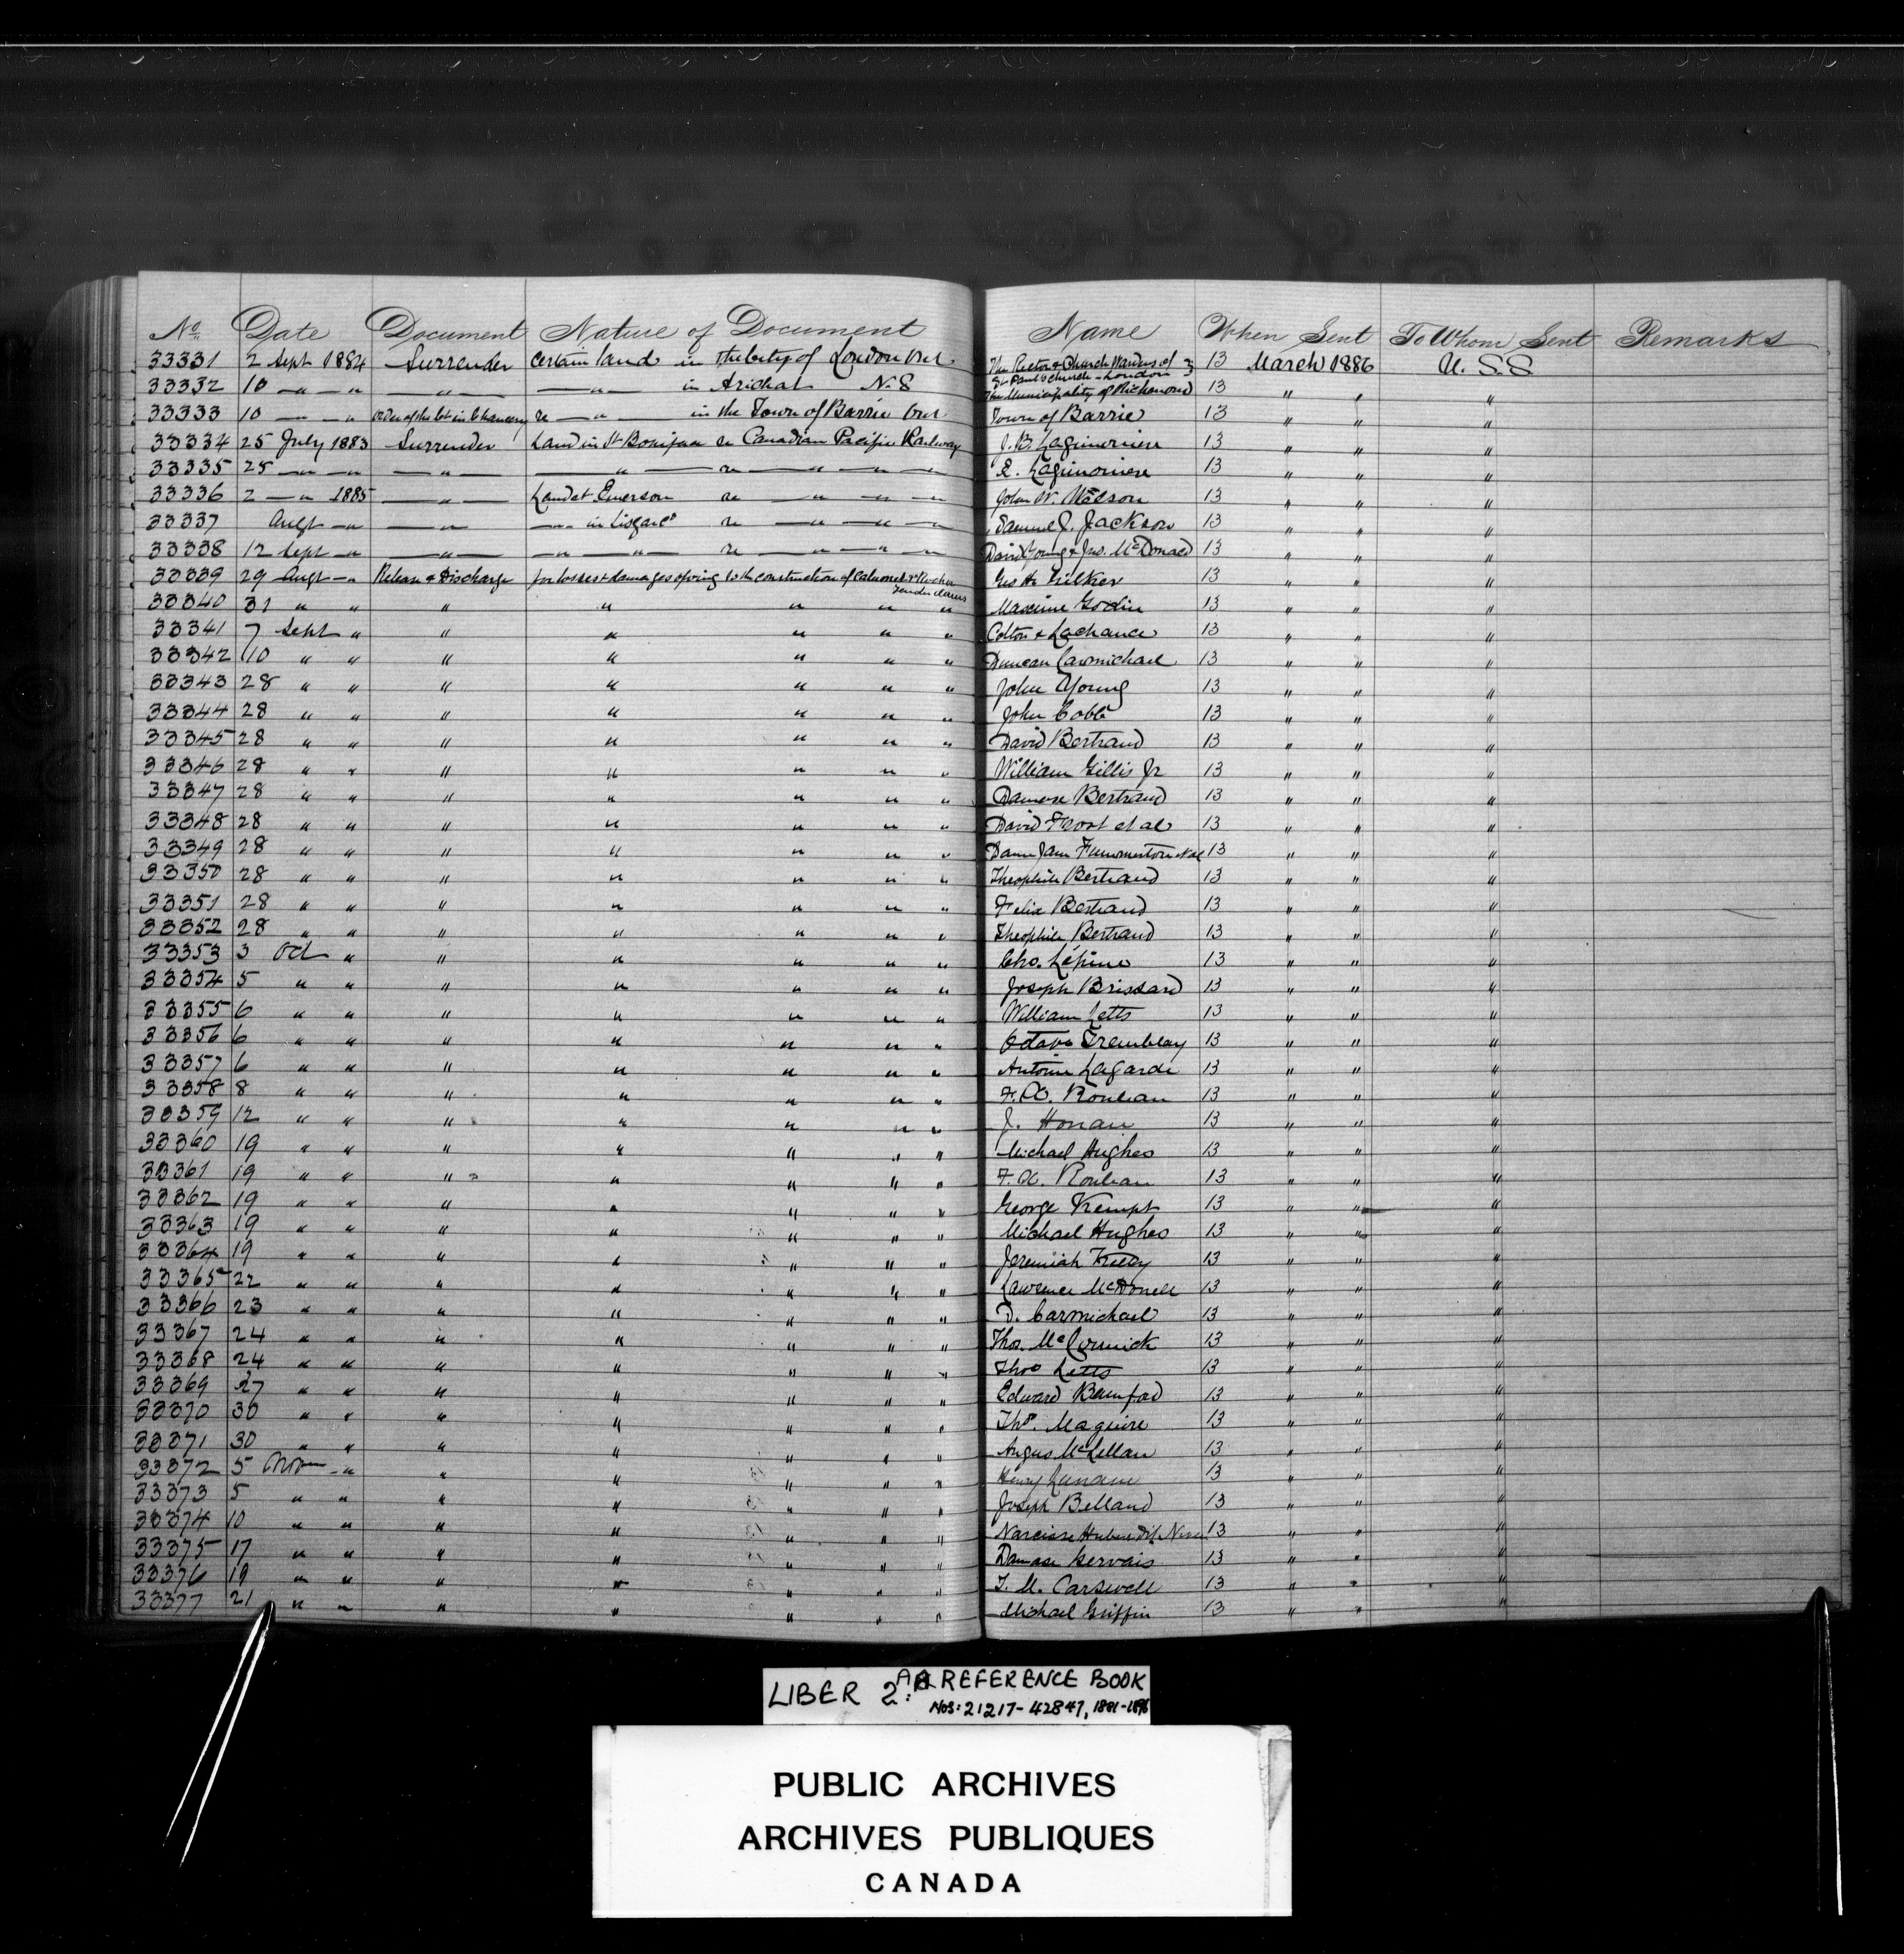 No Date Document Nature of Document Name When Sent To Whom Sent Remarks
33331 2 Sept 1884 Surrender Certain land in the City of London Ont The Rector & Church Wardens of St Paul's Church - London 13 March 1886 U. S. S
33332 10 " " " " in Arichat N. S The Municipality of Richmond 13 " " "
33333 10 " " Order of the Ct in Chancery re " in the Town of Barrie Ont Town of Barrie 13 " " "
33334 25 July 1883 Surrender Land in St Boniface re Canadian Pacific Railway J. B. Lagimoniere 13 " " "
33335 25 " " " " re " " " E. Lagimoniere 13 " " "
33336 2 " 1885 " Land at Emerson re " " " John W. 13 " " "
33337 Augt " " " in Lisgar re " " " Samuel J. Jackson 13 " " "
33338 12 Sept " " " " re " " " David Young & Jno. McDonald 13 " " "
33339 29 Augt " Release & Discharge for losses & damages owing to the construction of Calumet & Rocher Fendu dams Geo H. Gilker 13 " " "
33340 31 " " " " " " " Maxime Godin 13 " " "
33341 7 Sept " " " " " " Colton & Lachance 13 " " "
33342 10 " " " " " " " Duncan Carmichael 13 " " "
33343 28 " " " " " " " John Young 13 " " "
33344 28 " " " " " " " John Cobb 13 " " "
33345 28 " " " " " " " David Bertrand 13 " " "
33346 28 " " " " " " " William Gillis Jr 13 " " "
33347 28 " " " " " " " Damase Bertrand 13 " " "
33348 28 " " " " " " " David Frost et al 13 " " "
33349 28 " " " " " " " Dame Jane 13 " " "
33350 28 " " " " " " " Theophile Bertrand 13 " " "
33351 28 " " " " " " " Felix Bertrand 13 " " "
33352 28 " " " " " " " Theophile Bertrand 13 " " "
33353 3 Oct " " " " " " Chs. Lépine 13 " " "
33354 5 " " " " " " " Joseph Brissard 13 " " "
33355 6 " " " " " " " William Letts 13 " " "
33356 6 " " " " " " " Octave Tremblay 13 " " "
33357 6 " " " " " " " Antoine Lagarde 13 " " "
33358 8 " " " " " " " F. X. Rouleau 13 " " "
33359 12 " " " " " " " J. Honan 13 " " "
33360 19 " " " " " " " Michael Hughes 13 " " "
33361 19 " " " " " " " F. X. Rouleau 13 " " "
33362 19 " " " " " " " George Kempt 13 " " "
33363 19 " " " " " " " Michael Hughes 13 " " "
33364 19 " " " " " " " Jeremiah 13 " " "
33365 22 " " " " " " " Lawrence McDonell 13 " " "
33366 23 " " " " " " " D. Carmichael 13 " " "
33367 24 " " " " " " " Thos. McCormick 13 " " "
33368 24 " " " " " " " Thos Letts 13 " " "
33369 27 " " " " " " " Edward Bamford 13 " " "
33370 30 " " " " " " " Thos. Maguire 13 " " "
33371 30 " " " " " " " Angus McLellan 13 " " "
33372 5 Nov " " " " " " Henry Lunam 13 " " "
33373 5 " " " " " " " Joseph Belland 13 " " "
33374 10 " " " " " " " Narcisse dit 13 " " "
33375 17 " " " " " " " Damase Gervais 13 " " "
33376 19 " " " " " " " T. M. Carswell 13 " " "
33377 21 " " " " " " " Michael Griffin 13 " " "
LIBER 2: AA REFERENCE BOOK
NOS: 21217-42847, 1881-1896
PUBLIC ARCHIVES
ARCHIVES PUBLIQUES
CANADA